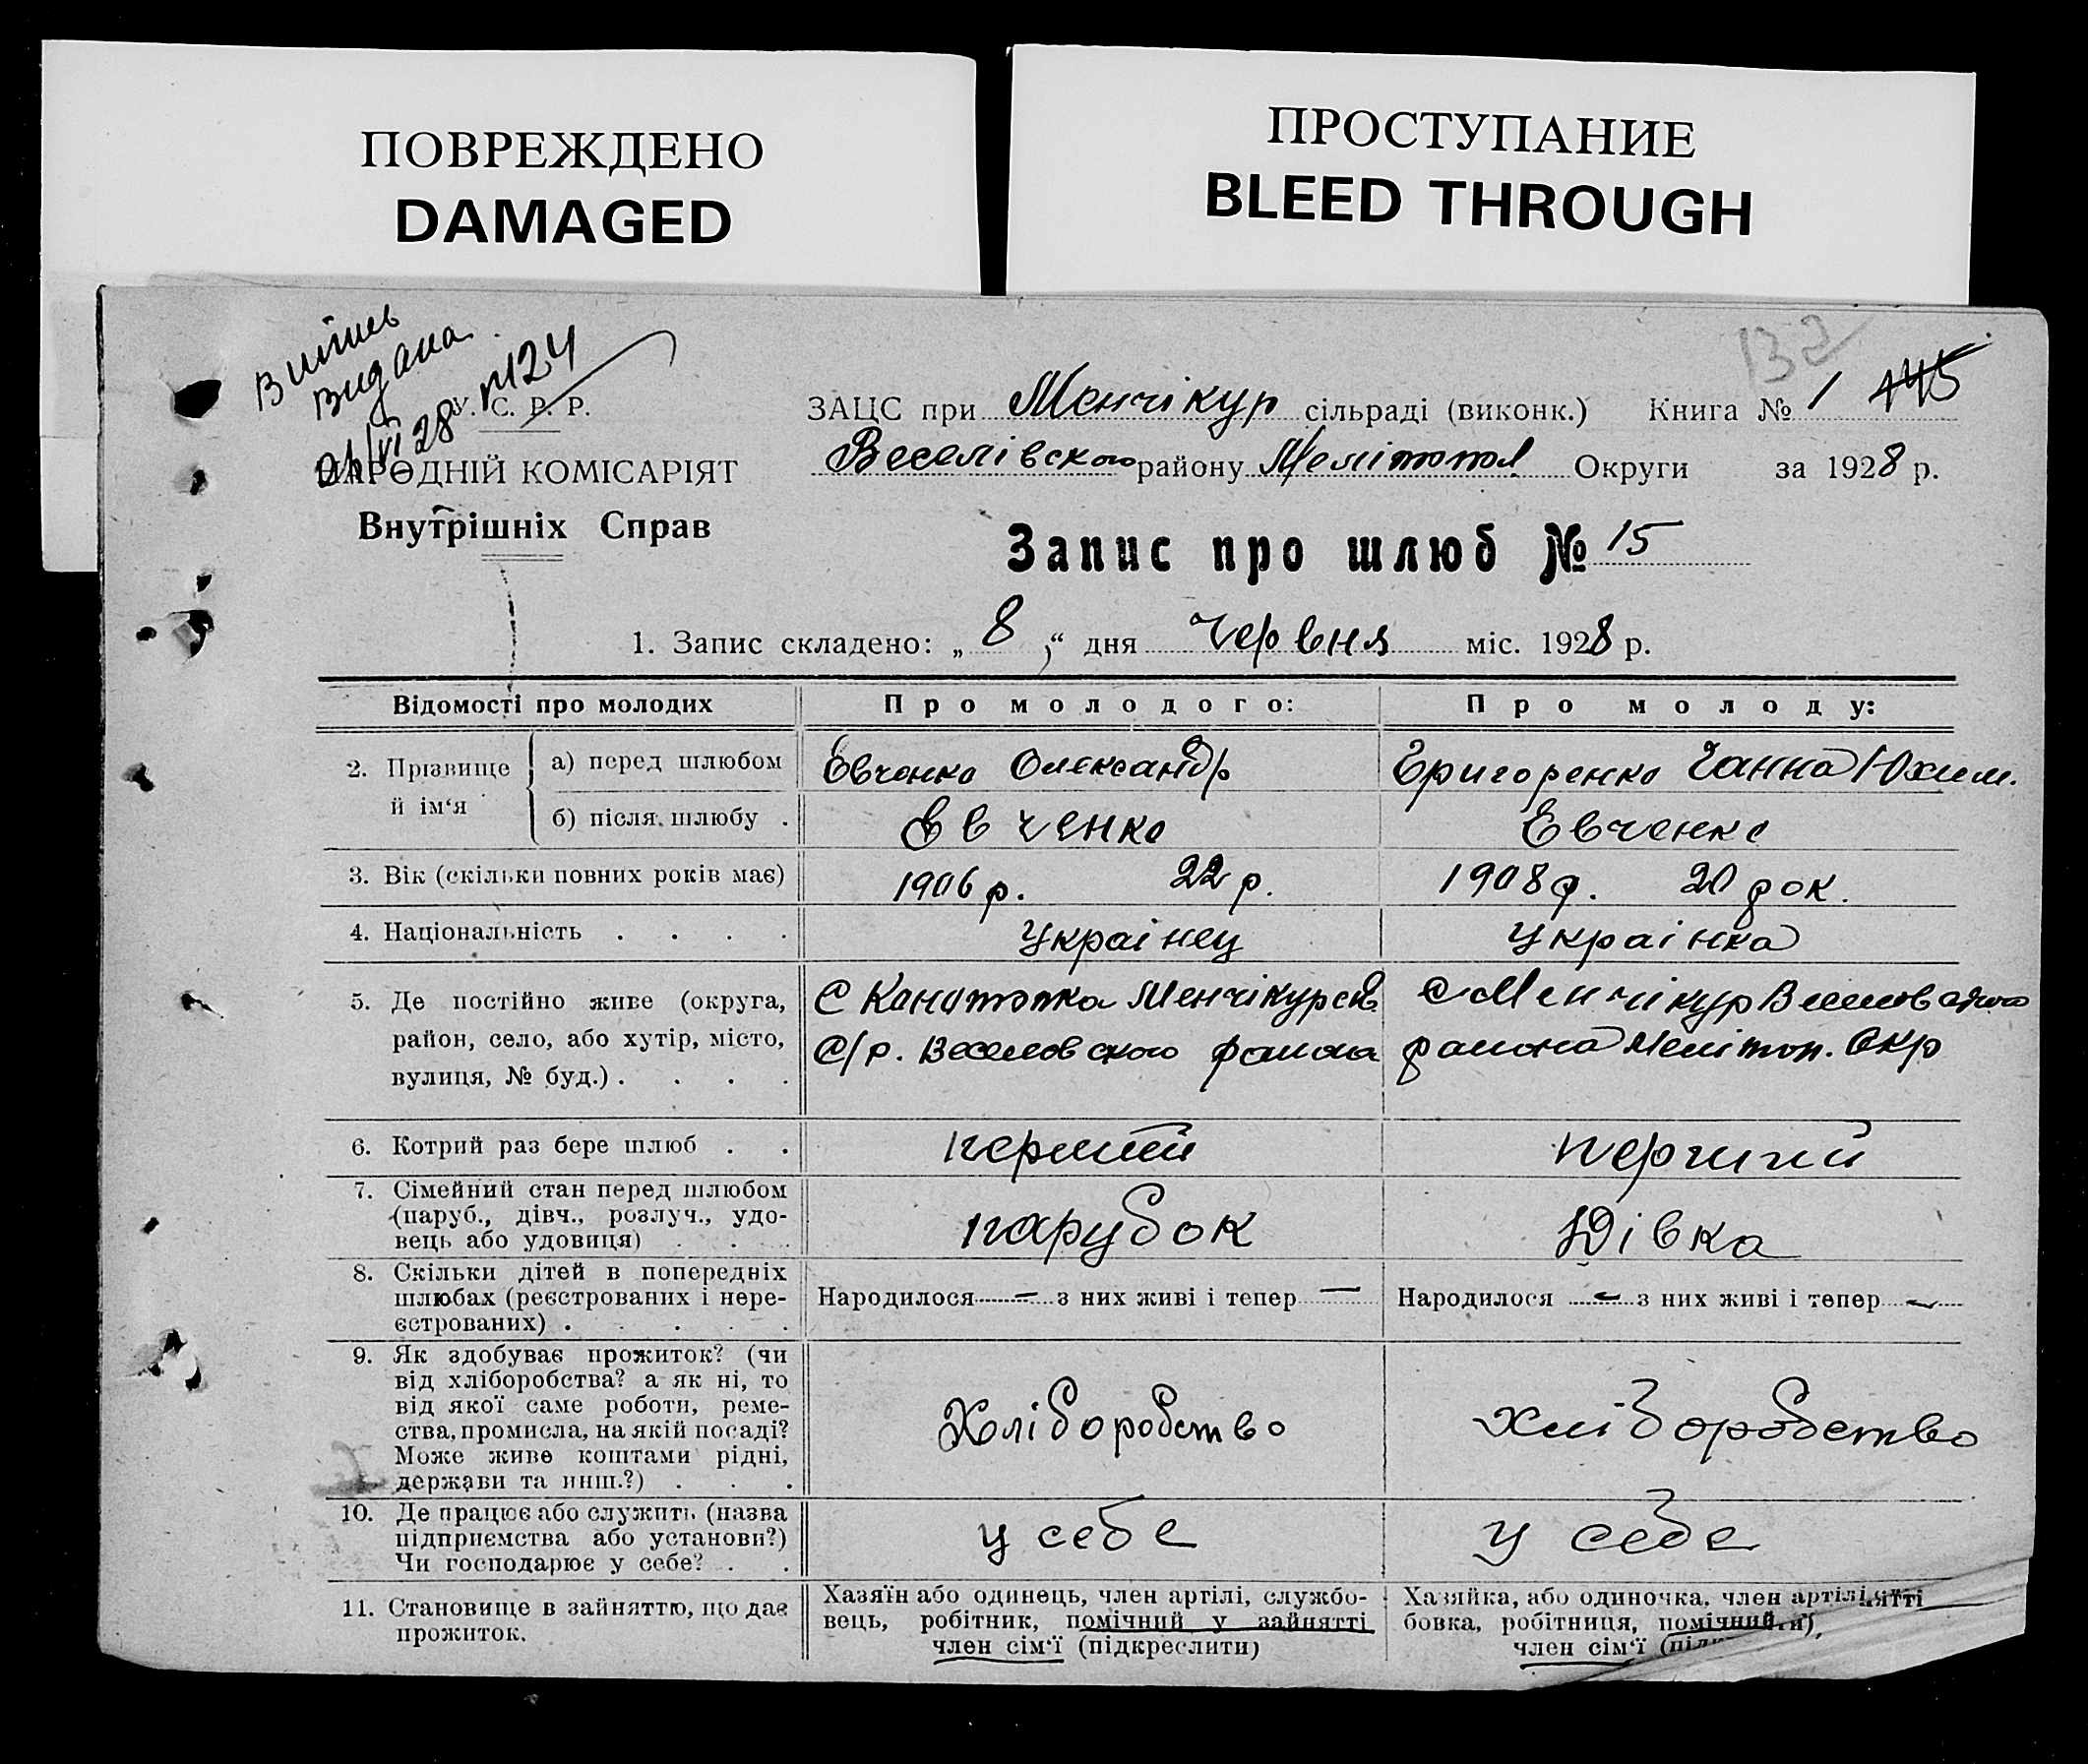 ПОВРЕЖДЕНО
DAMAGED
ПРОСТУПАНИЕ
BLEED THROUGH
Випись
Видана
VI 28 №124
132
У. С. Р. Р.
ЗАЦС при Менчікур сільраді (виконк.) Книга № 1 145
НАРОДНІЙ КОМІСАРІЯТ
Веселівского району Мелітопол Округи за 1928 р.
Внутрішніх Справ
Запис про шлюб № 15
1. Запис складено: „ 8 “ дня Червня міс. 1928 р.
Відомості про молодих
Про молодого:
Про молоду:
2. Прізвище й ім‘я
а) перед шлюбом
Евченко Олександр
Григоренко Ганна Юхим.
б) після шлюбу .
Евченко
Евченко
3. Вік (скільки повних років має)
1906 р. 22 р.
1908 р. 20 рок.
4. Національність . . . .
Українец
Українка
5. Де постійно живе (округа,
район, село, або хутір, місто,
вулиця, № буд.) . . . .
С Канотопка Менчікурск
С/р. Веселовского района
С Менчікур Веселовского
района Мелітоп. Окр
6. Котрий раз бере шлюб . .
перший
перший
7. Сімейний стан перед шлюбом
(паруб., дівч., розлуч., удо-
вець або удовиця) . .
парубок
Дівка
8. Скільки дітей в попередніх
шлюбах (реєстрованих і нере-
єстрованих) . . . .
Народилося — з них живі і тепер —
Народилося — з них живі і тепер —
9. Як здобуває прожиток? (чи
від хліборобства? а як ні, то
від якої саме роботи, реме-
ства, промисла, на якій посаді?
Може живе коштами рідні,
держави та инш.?) . . .
Хліборобство
Хліборобство
10. Де працює або служить (назва
підприємства або установи?)
Чи господарює у себе? . .
у себе
у себе
11. Становище в зайняттю, що дає
прожиток.
Хазяїн або одинець, член артілі, службо-
вець, робітник, помічний у зайнятті
член сім‘ї (підкреслити)
Хазяйка, або одиночка, член артілі,
бовка, робітниця, помічний
член сім‘ї